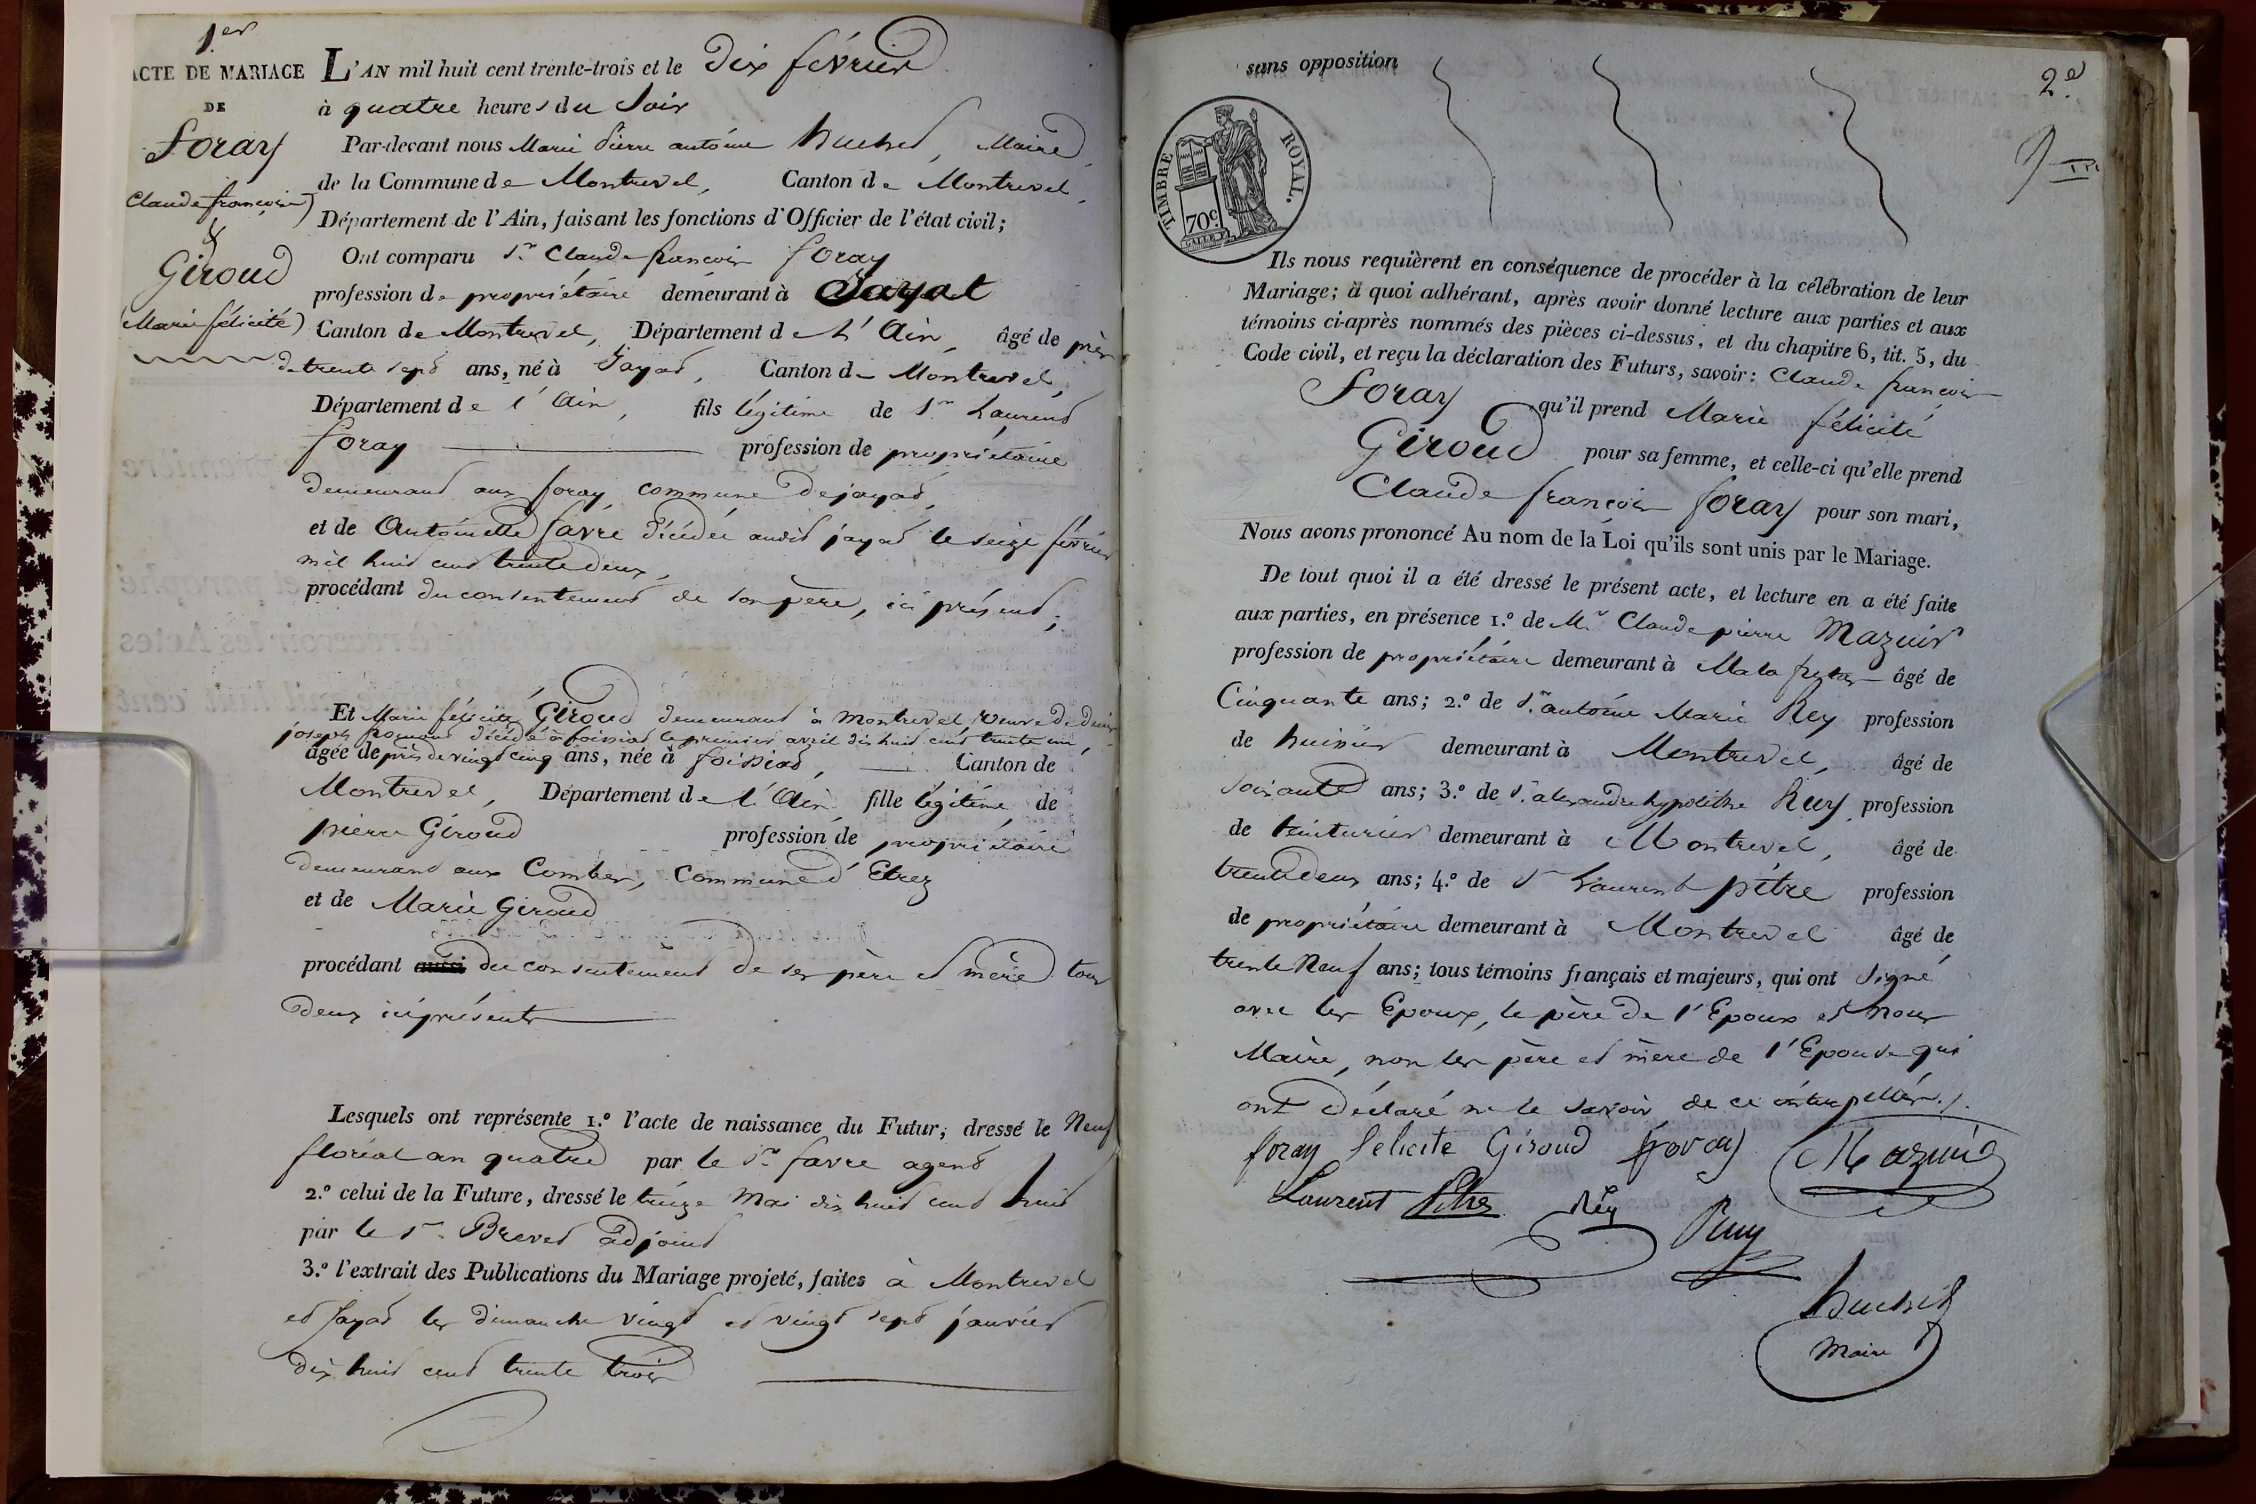 1.er
ACTE DE MARIAGE
DE
Foray
Claude françois
&
Giroud
(Marie félicité)
L'AN mil huit cent trente-trois et le dix février
à quatre heures du Soir
Par-devant nous Marie Pierre antoine huchet, Maire
de la Commune de Montrevel, Canton de Montrevel,
Département de l'Ain, faisant les fonctions d'Officier de l'état civil;
Ont comparu Sr. Claude françois foray
profession de propriétaire demeurant à Jayat
Canton de Montrevel, Département de l'Ain, âgé de près
de trente sept ans, né à Jayat, Canton de Montrevel
Département de l'Ain, fils légitime de Sr. Laurent
foray profession de propriétaire
demeurant aux foray commune de jayat,
et de Antoinette favre décédée audit jayat le seize février
mil huit cent trente deux,
procédant du consentement de son père, ici présent;
Et Marie félicité Giroud demeurant à Montrevel, veuve de denis
joseph décédé à foissiat le premier avril dix huit cent trente un,
âgée de près de vingt cinq ans, née à foissiat, Canton de
Montrevel, Département de l'Ain fille légitime de
pierre Giroud profession de propriétaire
demeurant aux Combes, Commune d'Etrez
et de Marie Giroud
procédant aussi du consentement de ses père et mère tous
deux ici présents
Lesquels ont représente 1.º l'acte de naissance du Futur, dressé le Neuf
floréal an quatre par le Sr. favre agent
2.º celui de la Future, dressé le treize Mai dix huit cent huit
par le Sr. Brevet adjoint
3.º l'extrait des Publications du Mariage projeté, faites à Montrevel
et Jayat les dimanche vingt et vingt sept janvier
dix huit cent trente trois
sans opposition
2.e
TIMBRE ROYAL.
70c.
Ils nous requièrent en conséquence de procéder à la célébration de leur
Mariage; à quoi adhérant, après avoir donné lecture aux parties et aux
témoins ci-après nommés des pièces ci-dessus, et du chapitre 6, tit. 5, du
Code civil, et reçu la déclaration des Futurs, savoir: Claude françois
Foray qu'il prend Marie félicité
Giroud pour sa femme, et celle-ci qu'elle prend
Claude françois foray pour son mari,
Nous avons prononcé Au nom de la Loi qu'ils sont unis par le Mariage.
De tout quoi il a été dressé le présent acte, et lecture en a été faite
aux parties, en présence 1.º de Mr. Claude pierre Mazuir
profession de propriétaire demeurant à Malafretaz âgé de
Cinquante ans; 2.º de Sr. antoine Marie Rey profession
de huissier demeurant à Montrevel, âgé de
soixante ans; 3.º de Sr. alexandre hypolithe Ruy profession
de teinturier demeurant à Montrevel, âgé de
trente deux ans; 4.º de Sr Laurent pitre profession
de propriétaire demeurant à Montrevel âgé de
trente Neuf ans; tous témoins français et majeurs, qui ont signé
avec les Epoux, le père de l'Epoux et Nous
Maire, non les père et mère de l'Epouse qui
ont déclaré ne le savoir de ce interpellés./.
foray felicite Giroud foray Mazuir
Laurent Pitre Rey Ruy
huchet
Maire